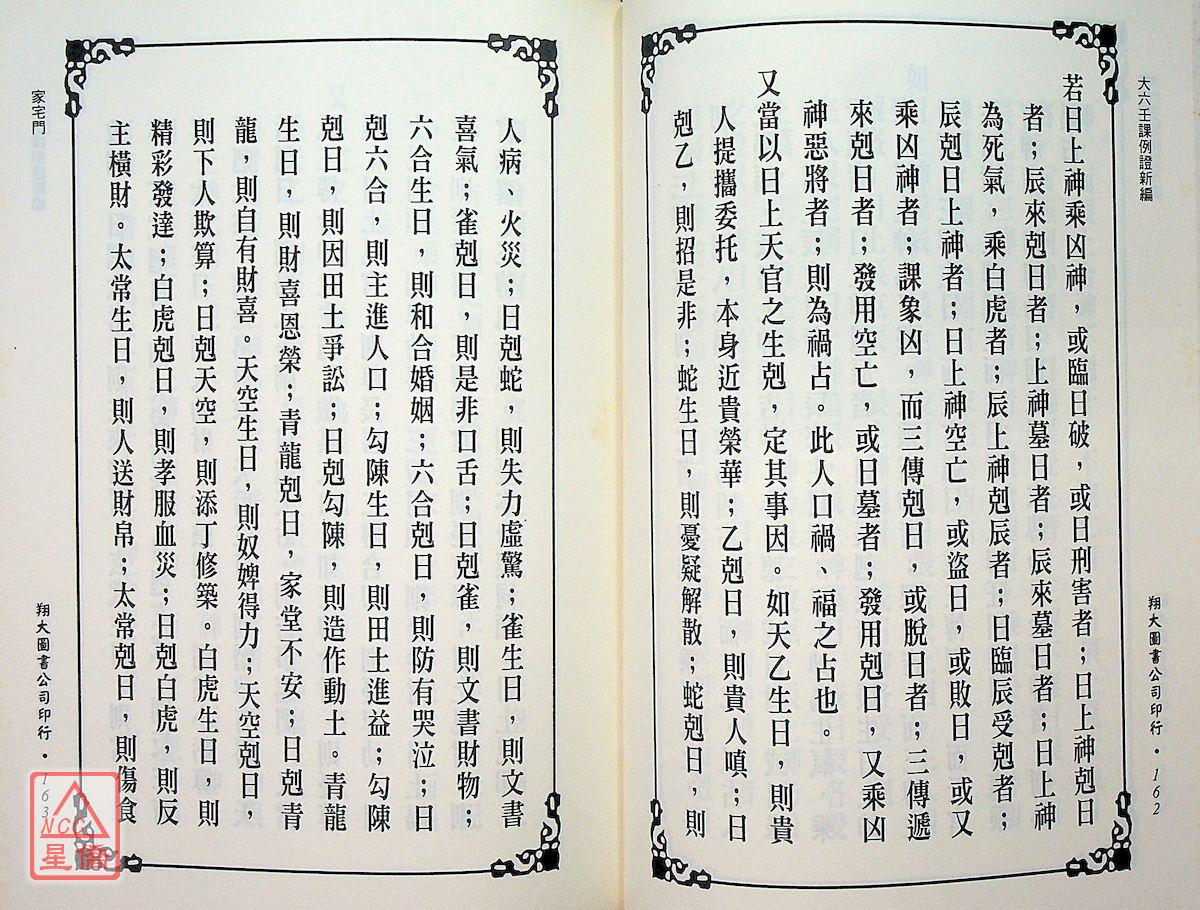 大六壬課例證新編
若日上神乘凶神，或臨日破，或日刑害者；日上神剋日
者；辰來剋日者；上神墓日者；辰來墓日者；日上神
為死氣，乘白虎者；辰上神剋辰者；日臨辰受剋者；
辰剋日上神者；日上神空亡，或盜日，或敗日，或又
乘凶神者；課象凶，而三傳剋日，或脫日者；三傳遞
來剋日者；發用空亡，或日墓者；發用剋日，又乘凶
神惡將者；則為禍占。此人口禍、福之占也。
又當以日上天官之生剋，定其事因。如天乙生日，則貴
人提攜委托，本身近貴榮華；乙剋日，則貴人嗔；日
剋乙，則招是非；蛇生日，則憂疑解散；蛇剋日，則
翔大圖書公司印行・162
家宅門
人病、火災；日剋蛇，則失力虛驚；雀生日，則文書
喜氣；雀剋日，則是非口舌；日剋雀，則文書財物；
六合生日，則和合婚姻；六合剋日，則防有哭泣；日
剋六合，則主進人口；勾陳生日，則田土進益；勾陳
剋日，則因田土爭訟；日剋勾陳，則造作動土。青龍
生日，則財喜恩榮；青龍剋日，家堂不安；日剋青
龍，則自有財喜。天空生日，則奴婢得力；天空剋日，
則下人欺算；日剋天空，則添丁修築。白虎生日，則
精彩發達；白虎剋日，則孝服血災；日剋白虎，則反
主橫財。太常生日，則人送財帛；太常剋日，則傷食
翔大圖書公司印行・163
NCC
星僑